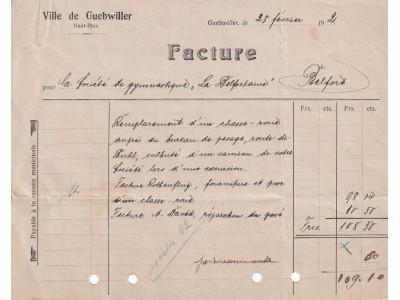 Ville de Guebwiller
Haut-Rhin
Guebwiller, le 25 février 1921
Facture
pour La Société de gymnastique "La Belfortaine" Belfort
Frs. cts. Frs. cts.
Remplacement d'un chasse-roue
auprès du bureau de pesage, route de
Buhl, culbuté d'un camion de votre
Société lors d'une excursion.
Facture , fourniture et pose
d'un chasse-roue 98 00
Facture A. David, réparation du pavé 10 50
Frcs. 108 50
port recommandé 60
109.10
Payable à la recette municipale